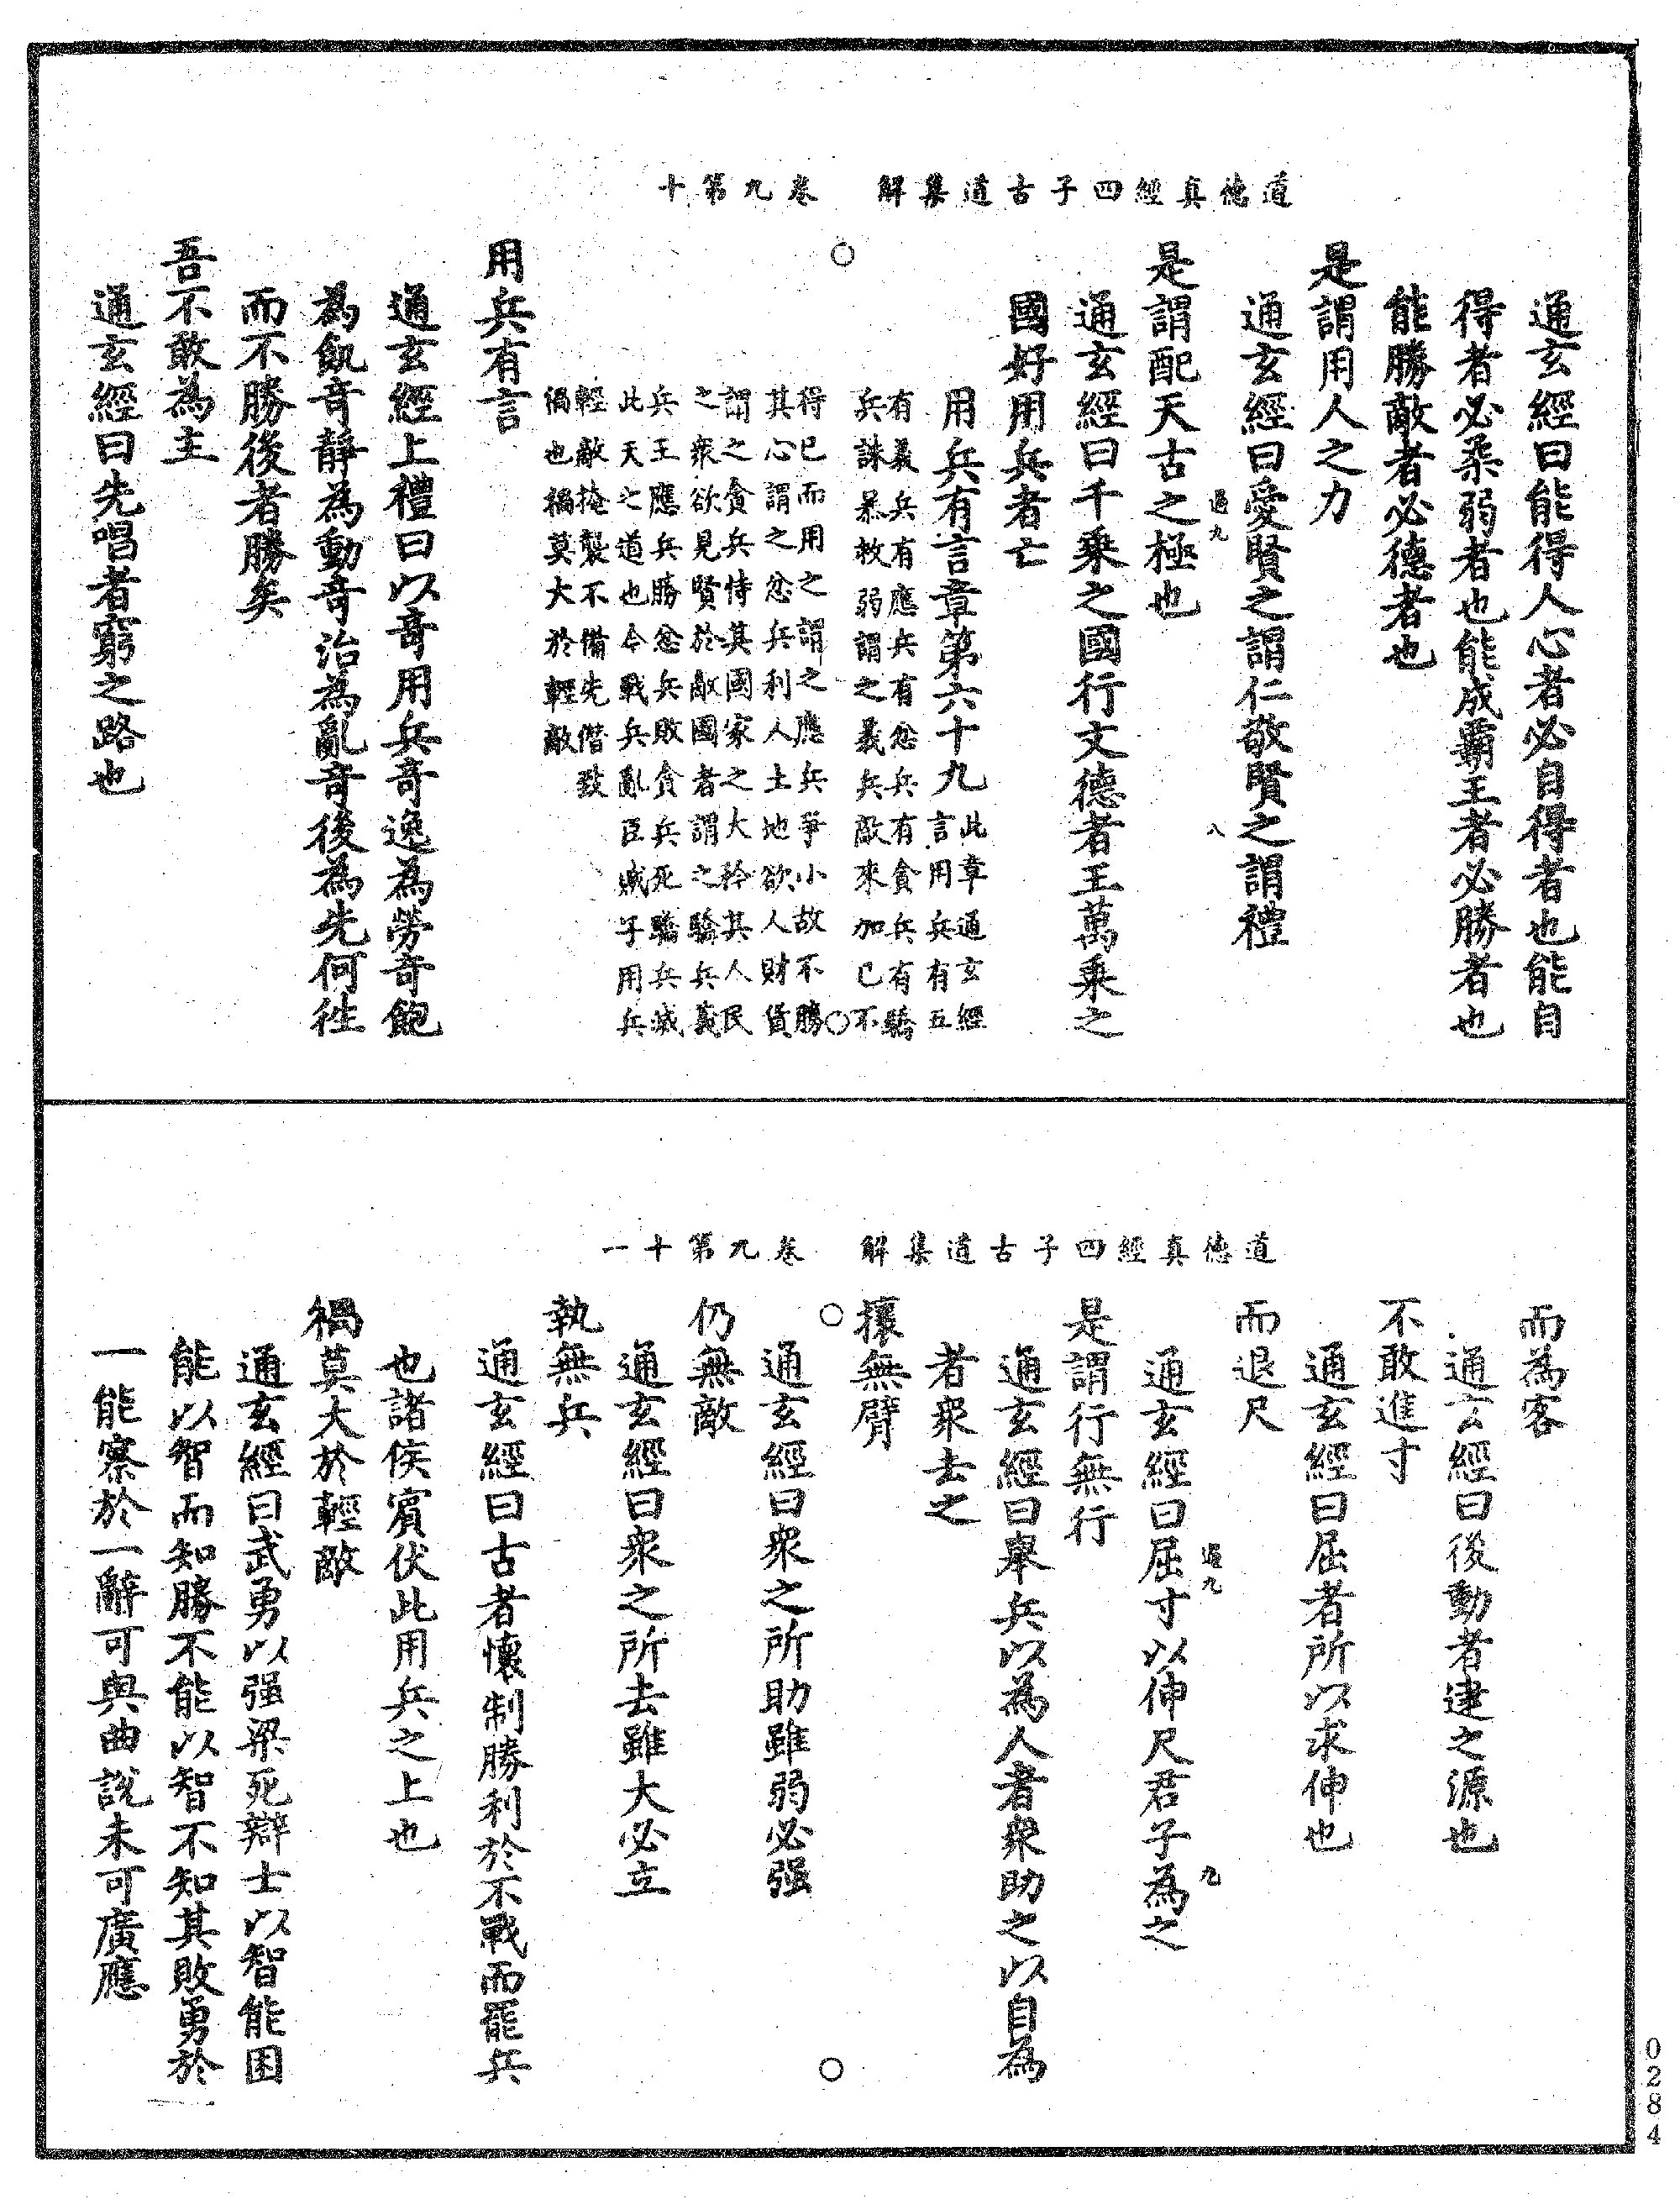 道德真經四子古道集解　卷九第十
通玄經曰能得人心者必自得者也能自
得者必柔弱者也能成霸王者必勝者也
能勝敵者必德者也
是謂用人之力
通玄經曰愛賢之謂仁敬賢之謂禮
過九　八
是謂配天古之極也
通玄經曰千乘之國行文德者王萬乘之
國好用兵者亡
用兵有言章第六十九
此章通玄經
言用兵有五
有義兵有應兵有忿兵有貪兵有驕
兵誅暴救弱謂之義兵敵來加已不
○
○
得已而用之謂之應兵爭小故不勝
其心謂之忿兵利人土地欲人財貨
謂之貪兵恃其國家之大矜其人民
之衆欲見賢於敵國者謂之驕兵義
兵王應兵勝忿兵敗貪兵死驕兵滅
此天之道也今戰兵亂臣賊子用兵
輕敵掩襲不備先僭致
禍也禍莫大於輕敵
用兵有言
通玄經上禮曰以奇用兵奇逸為勞奇飽
為飢奇靜為動奇治為亂奇後為先何往
而不勝後者勝矣
吾不敢為主
通玄經曰先唱者窮之路也
道德真經四子古道集解　卷九第十一
而為客
通玄經曰後動者逹之源也
不敢進寸
通玄經曰屈者所以求伸也
而退尺
過九　九
通玄經曰屈寸以伸尺君子為之
是謂行無行
通玄經曰舉兵以為人者衆助之以自為
者衆去之
攘無臂
○
○
通玄經曰衆之所助雖弱必强
仍無敵
通玄經曰衆之所去雖大必立
執無兵
通玄經曰古者懷制勝利於不戰而罷兵
也諸侯賓伏此用兵之上也
禍莫大於輕敵
通玄經曰武勇以强梁死辯士以智能困
能以智而知勝不能以智不知其敗勇於
一能察於一辭可與曲說未可廣應
0284